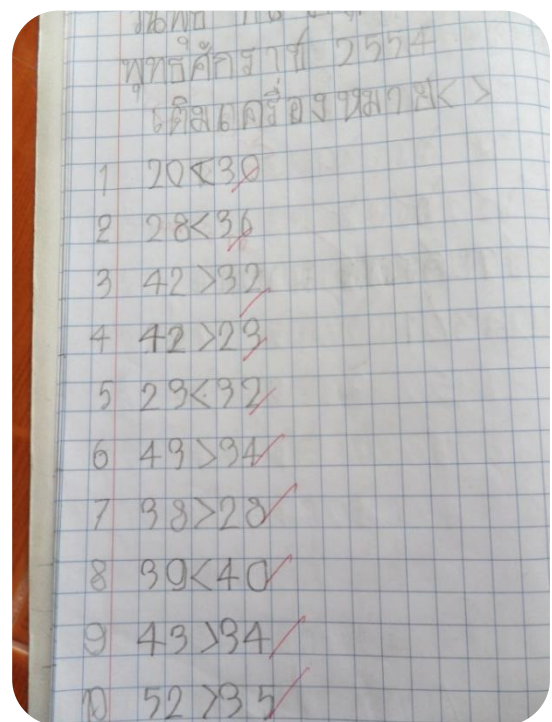 วันพุธ
พุทธศักราช 2554
เติมเครื่องหมาย< >
1 20<30
2 28<36
3 42>32
4 42>23
5 23<32
6 43>34
7 38>28
8 39<40
9 43>34
10 52>35